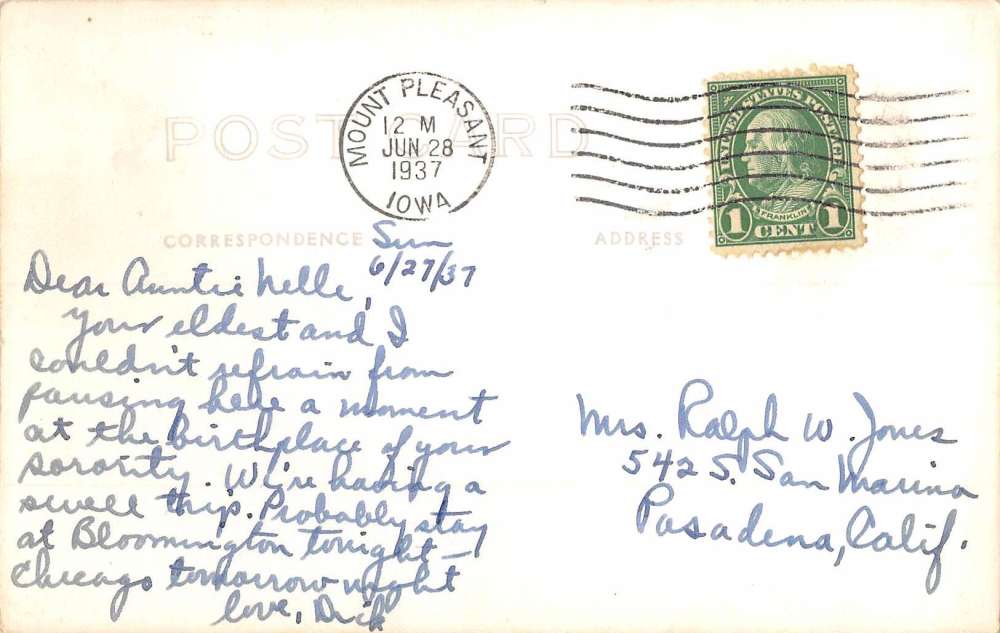 POST CARD
MOUNT PLEASANT
12 M
JUN 28
1937
IOWA
UNITED STATES POSTAGE
FRANKLIN
1 CENT 1
CORRESPONDENCE
ADDRESS
Sun
6/27/37
Dear Auntie Nelle,
Your eldest and I
couldn't refrain from
pausing here a moment
at the birthplace of your
sorority. We're having a
swell trip. Probably stay
at Bloomington tonight –
Chicago tomorrow night
love, Dick
Mrs. Ralph W. Jones
542 S. San Marino
Pasadena, Calif.